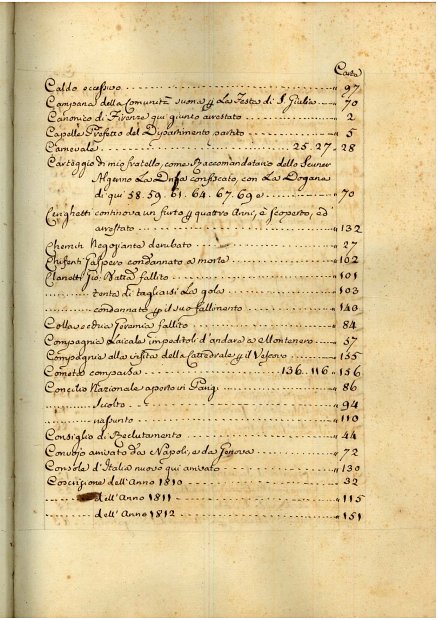 Carta
Caldo eccessivo " 97
Campana della Comunità suona p La Festa di S. Giulia " 70
Canonico di Firenze qui giunto arrestato " 2
Capelle Prefetto del Dipartimento partito " 5
Carnevale 25. 27. " 28
Carteggio di mio fratello, come Raccomandatario dello
Algerino La confiscato, con La Dogana
di qui 58. 59. 61. 64. 67. 69 e " 70
continova un furto p quattro Anni, è scoperto, ed
arrestato " 132
Negoziante derubato " 27
Gaspero condannato a morte " 102
Gio. Batta fallito " 101
tenta di tagliarsi La gola " 103
condannato p il suo fallimento " 140
Geremia fallito " 84
Compagnia Laicale impeditoli d'andare a Montenero " 57
Compagnie alla visita della Cattedrale p il Vescovo " 155
Cometa comparsa 136. 116 " 156
Concilio Nazionale aperto in Parigi " 86
sciolto " 94
riassunto " 110
Consiglio di Reclutamento " 44
Convojo arrivato da Napoli, e da Genova " 72
Console d'Italia nuovo qui arrivato " 130
Coscrizione dell'Anno 1810 " 32
dell'Anno 1811 " 115
dell'Anno 1812 " 151